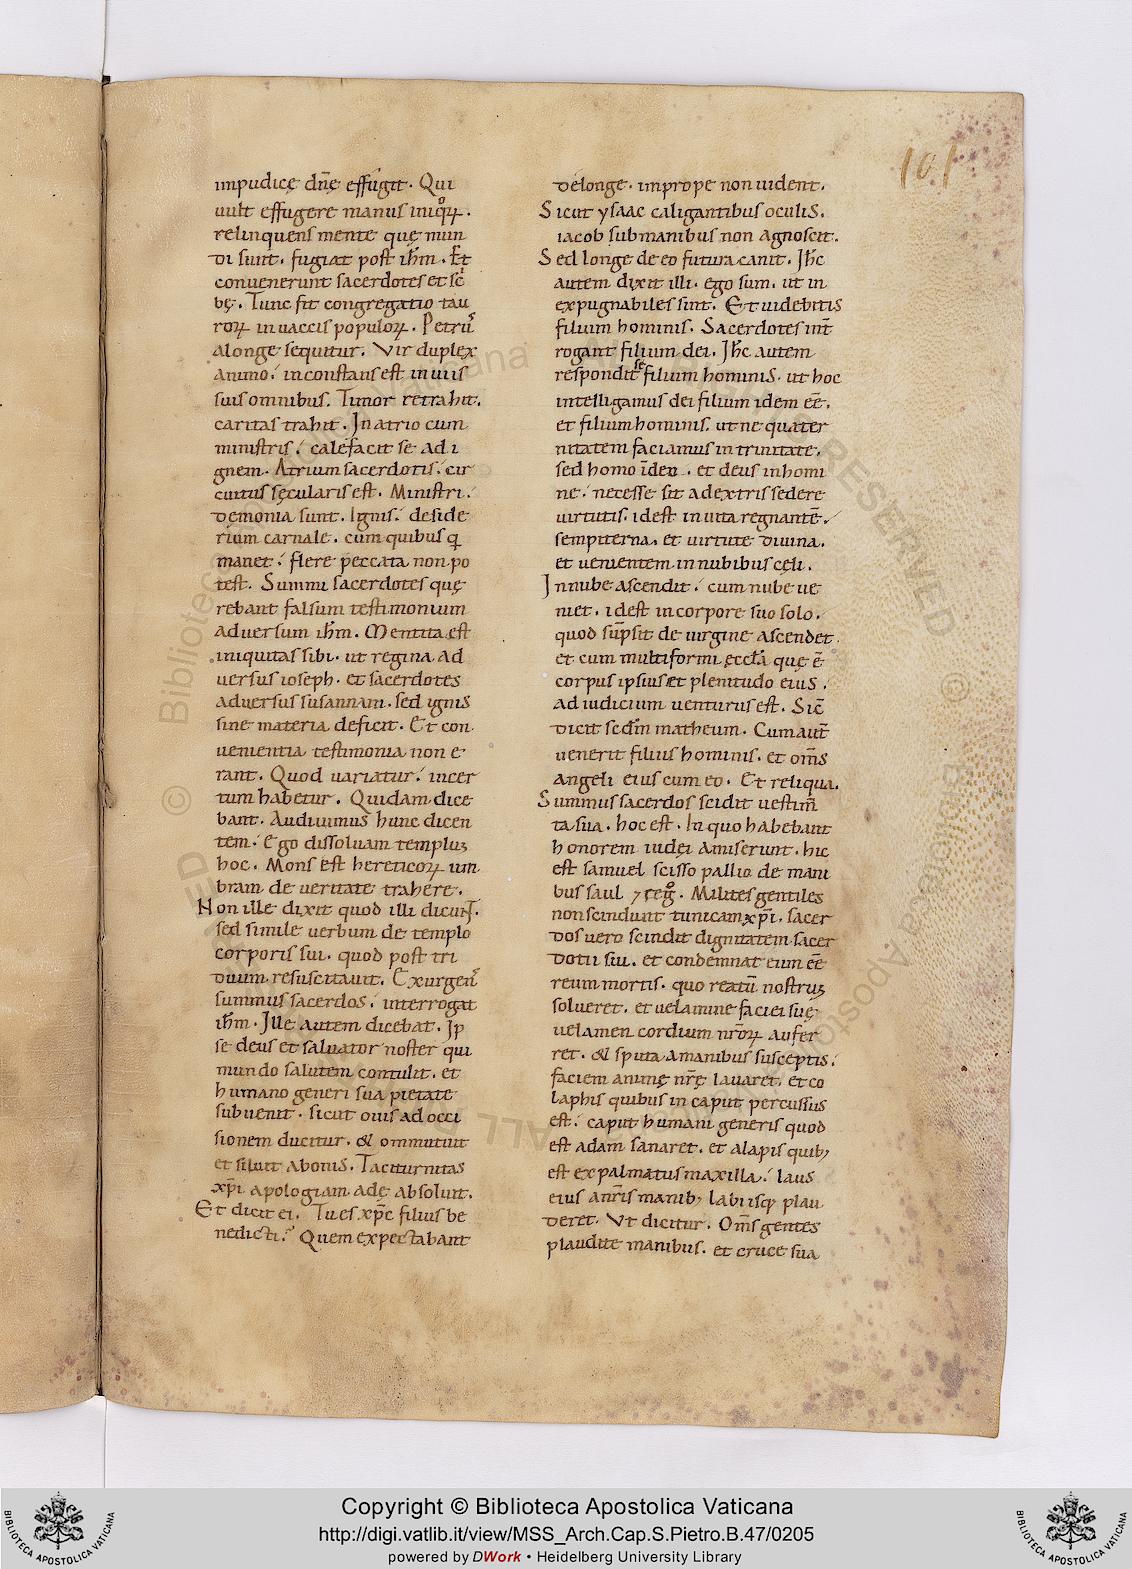 101
impudicę dn̄ę effugit. Qui
uult effugere manus iniqͦꝝ.
relinquens mente quę mun
di sunt. fugiat post ih̄m. Et
convenerunt sacerdotes et sc̄
bę. Tunc fit congregatio tau
roꝝ in uaccis populoꝝ. Petrus̄
alonge sequitur. Vir duplex
animo. inconstans est in uiis
suis omnibus. Timor retrahit.
caritas trahit. In atrio cum
ministris. calefacit se ad i
gnem. Atrium sacerdotis. cir
cuitus sęcularis est. Ministri.
demonia sunt. Ignis. deside
rium carnale. cum quibus q̄
manet. flere peccata non po
test. Summi sacerdotes quę
rebant falsum testimonium
adversum ih̄m. Mentita est
iniquitas sibi. ut regina ad
uersus ioseph. et sacerdotes
adversus susannam. sed ignis
sine materia deficit. Et con
uenientia testimonia non e
rant. Quod uariatur. incer
tum habetur. Quidam dice
bant. Audiuimus hunc dicen
tem. Ego dissoluam templuꝫ
hoc. Mons est hereticoꝝ um
bram de ueritate trahere.
Non ille dixit quod illi dicunt.
sed simile uerbum de templo
corporis sui. quod post tri
duum resuscitauit. Exurgens̄
summus sacerdos. interrogat
ih̄m. Ille autem dicebat. Ip
se deus et saluator noster qui
mundo salutem contulit. et
humano generi sua pietate
subuenit. sicut ouis ad occi
sionem ducitur. & ommutuit
et siluit abonis. Taciturnitas
xp̄i apologiam adę absoluit.
Et dicit ei. Tu es xp̄c filius be
nedicti? Quem expectabant
delonge. imprope non uident.
Sicut ysaac caligantibus oculis.
iacob submanibus non agnoscit.
Sed longe de eo futura canit. Ih̄c
autem dixit illi. ego sum. ut in
expugnabiles sint. Et uidebitis
filium hominis. Sacerdotes int̄
rogant filium dei. Ih̄c autem
respondit se filium hominis. ut hoc
intelligamus dei filium idem eē.
et filium hominis. ut ne quater
nitatem faciamus in trinitate.
sed homo in deo. et deus inhomi
ne. necesse sit adextris sedere
uirtutis. id est in uita regnantē.
sempiterna. et uirtute divina.
et uenientem in nubibus cęli.
In nube ascendit. cum nube ue
niet. id est in corpore suo solo.
quod sūpsit de uirgine ascendet.
et cum multiformi ęccl̄a quę ē
corpus ipsius et plenitudo eius.
ad iudicium uenturus est. Sic̄
dicit scd̄m matheum. Cum aut̄
uenerit filius hominis. et om̄s
angeli eius cum eo. Et reliqua.
Summus sacerdos scidit uestim̄
ta sua. hoc est. In quo habebant
honorem iudęi amiserunt. hic
est samuel scisso pallio de mani
bus saul ⁊ regͦ. Milites gentiles
non scindunt tunicam xp̄i. sacer
dos uero scindit dignitatem sacer
dotii sui. et condemnat eum eē
reum mortis. quo reatū nostruꝫ
solueret. et uelamine faciei suę
uelamen cordium nr̄oꝝ aufer
ret. & sputa amanibus susceptis.
faciem animę nr̄ę lauaret. et co
laphis quibus in caput percussus
est. caput humani generis quod
est adam sanaret. et alapis quibꝫ
est expalmatus maxilla. laus
eius anr̄is manibꝫ labiisqꝫ plau
deret. Vt dicitur. Om̄s gentes
plaudite manibus. et cruce sua
Copyright © Biblioteca Apostolica Vaticana
http://digi.vatlib.it/view/MSS_Arch.Cap.S.Pietro.B.47/0205
powered by DWork • Heidelberg University Library
BIBLIOTECA APOSTOLICA VATICANA
BIBLIOTECA APOSTOLICA VATICANA